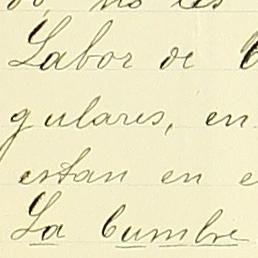 no les
Labor de
gulares, en
estan en e
La Cumbre